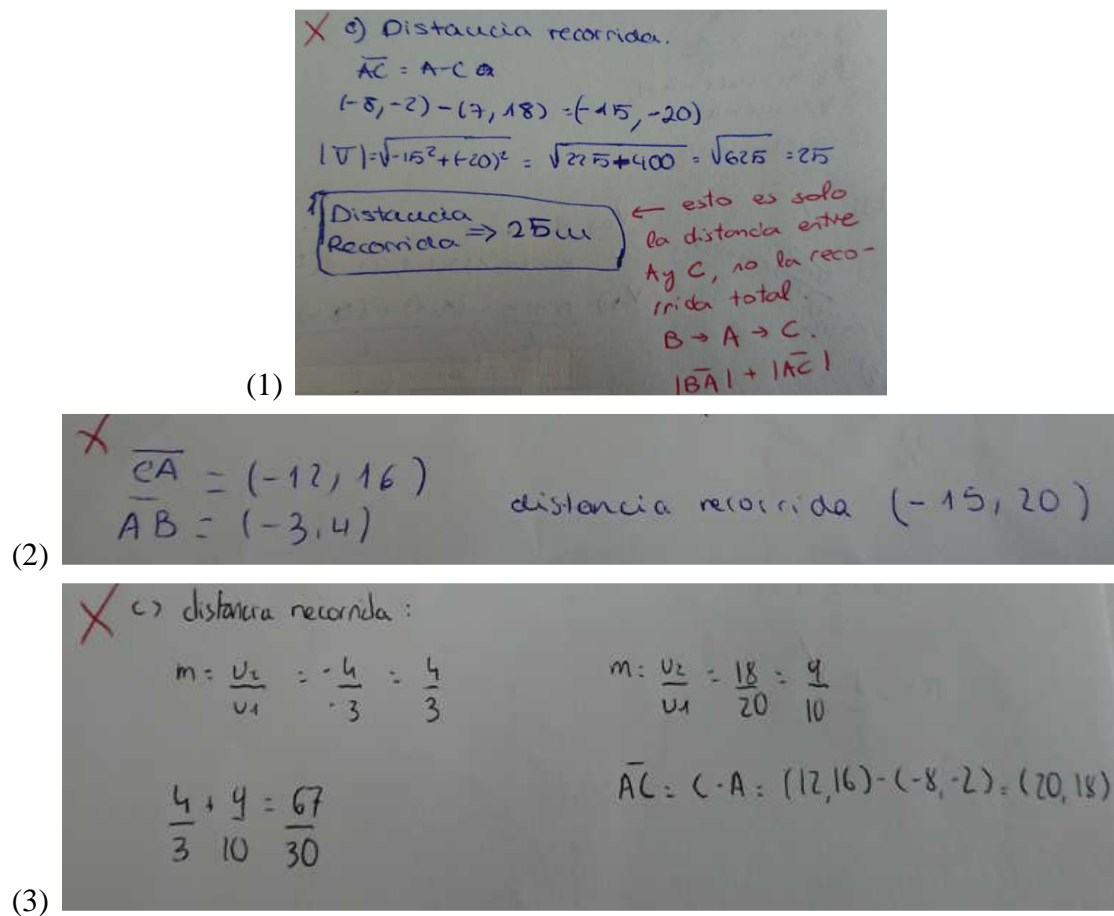 ✗ c) Distancia recorrida.
AC = A-C
(-8,-2)-(7,18) =(-15,-20)
|V|=√-15²+(-20)² = √225+400 = √625 = 25
Distancia
Recorrida => 25m
← esto es solo
la distancia entre
A y C, no la reco-
rrida total.
B → A → C.
|BA| + |AC|
(1)
✗
CA = (-12, 16)
AB = (-3, 4)
distancia recorrida (-15, 20)
(2)
✗ c) distancia recorrida:
m: U2/U1 = -4/-3 = 4/3
m: U2/U1 = 18/20 = 9/10
AC = C-A = (12,16)-(-8,-2) = (20,18)
4/3 + 9/10 = 67/30
(3)